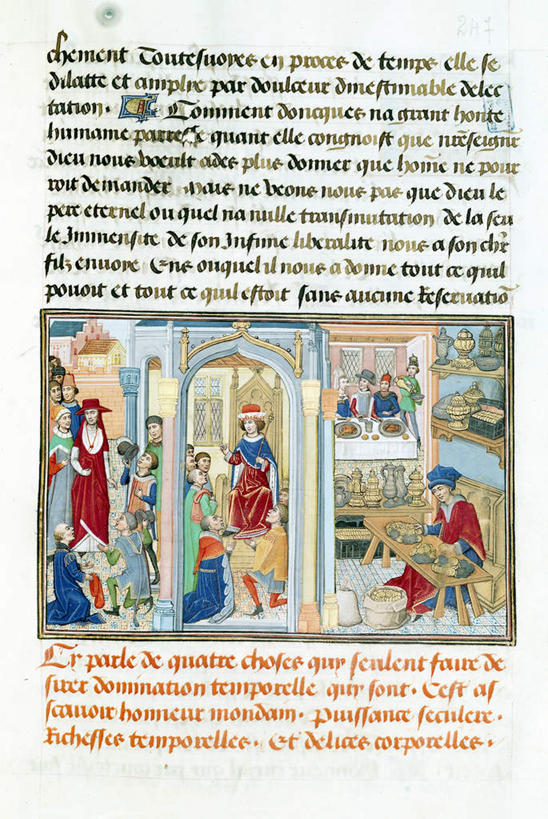 247
chement Toutesuoyes en proces de temps elle se
dilatte et amplye par doulceur dinestimable delec
tation. Comment doncques na grant honte
humaine parresse quant elle congnoist que nrẽseignr
dieu nous voeult ades plus donner que hom̃e ne pour
roit demander. Mais ne veons nous pas que dieu le
pere eternel ou quel na nulle transmutation de la seu
le Immensite de son Infinie liberalite nous a son chr̃
filz enuoye Ens ouquel il nous a donne tout ce quil
pouoit et tout ce quil estoit sans aucune Reseruatiõ
Cy parle de quatre choses quy seulent faire de
sirer domination temporelle quy sont. Cest as
scauoir honneur mondain. Puissance seculere.
Richesses temporelles. Et delices corporelles.